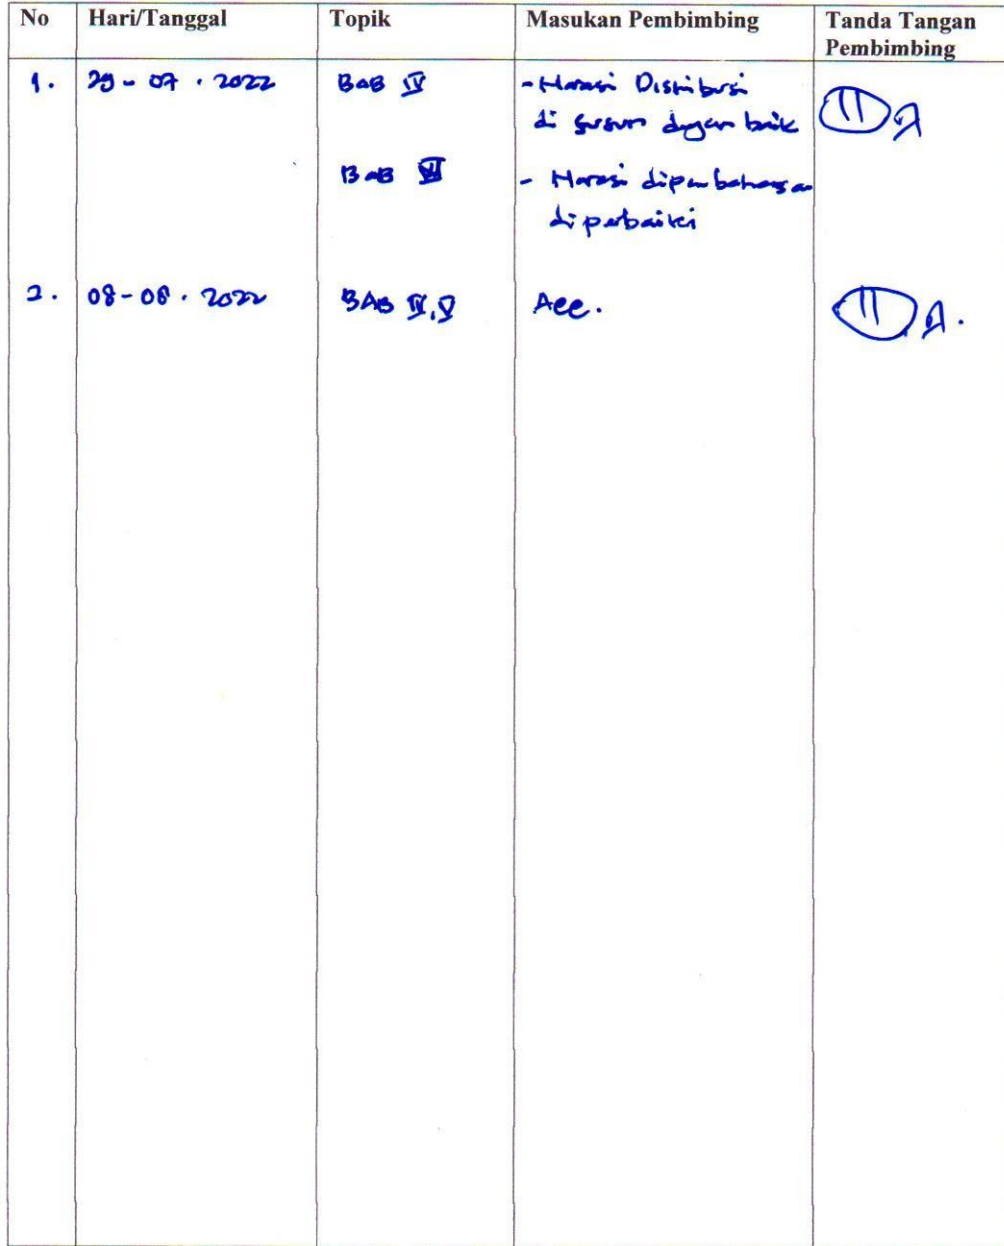 No Hari/Tanggal Topik Masukan Pembimbing Tanda Tangan Pembimbing
1. 29-07.2022 BAB IV - Narasi Distribusi
di susun dengan baik
BAB - Narasi dipembahasan
diperbaiki
2. 08-08.2022 BAB IV, V Acc.